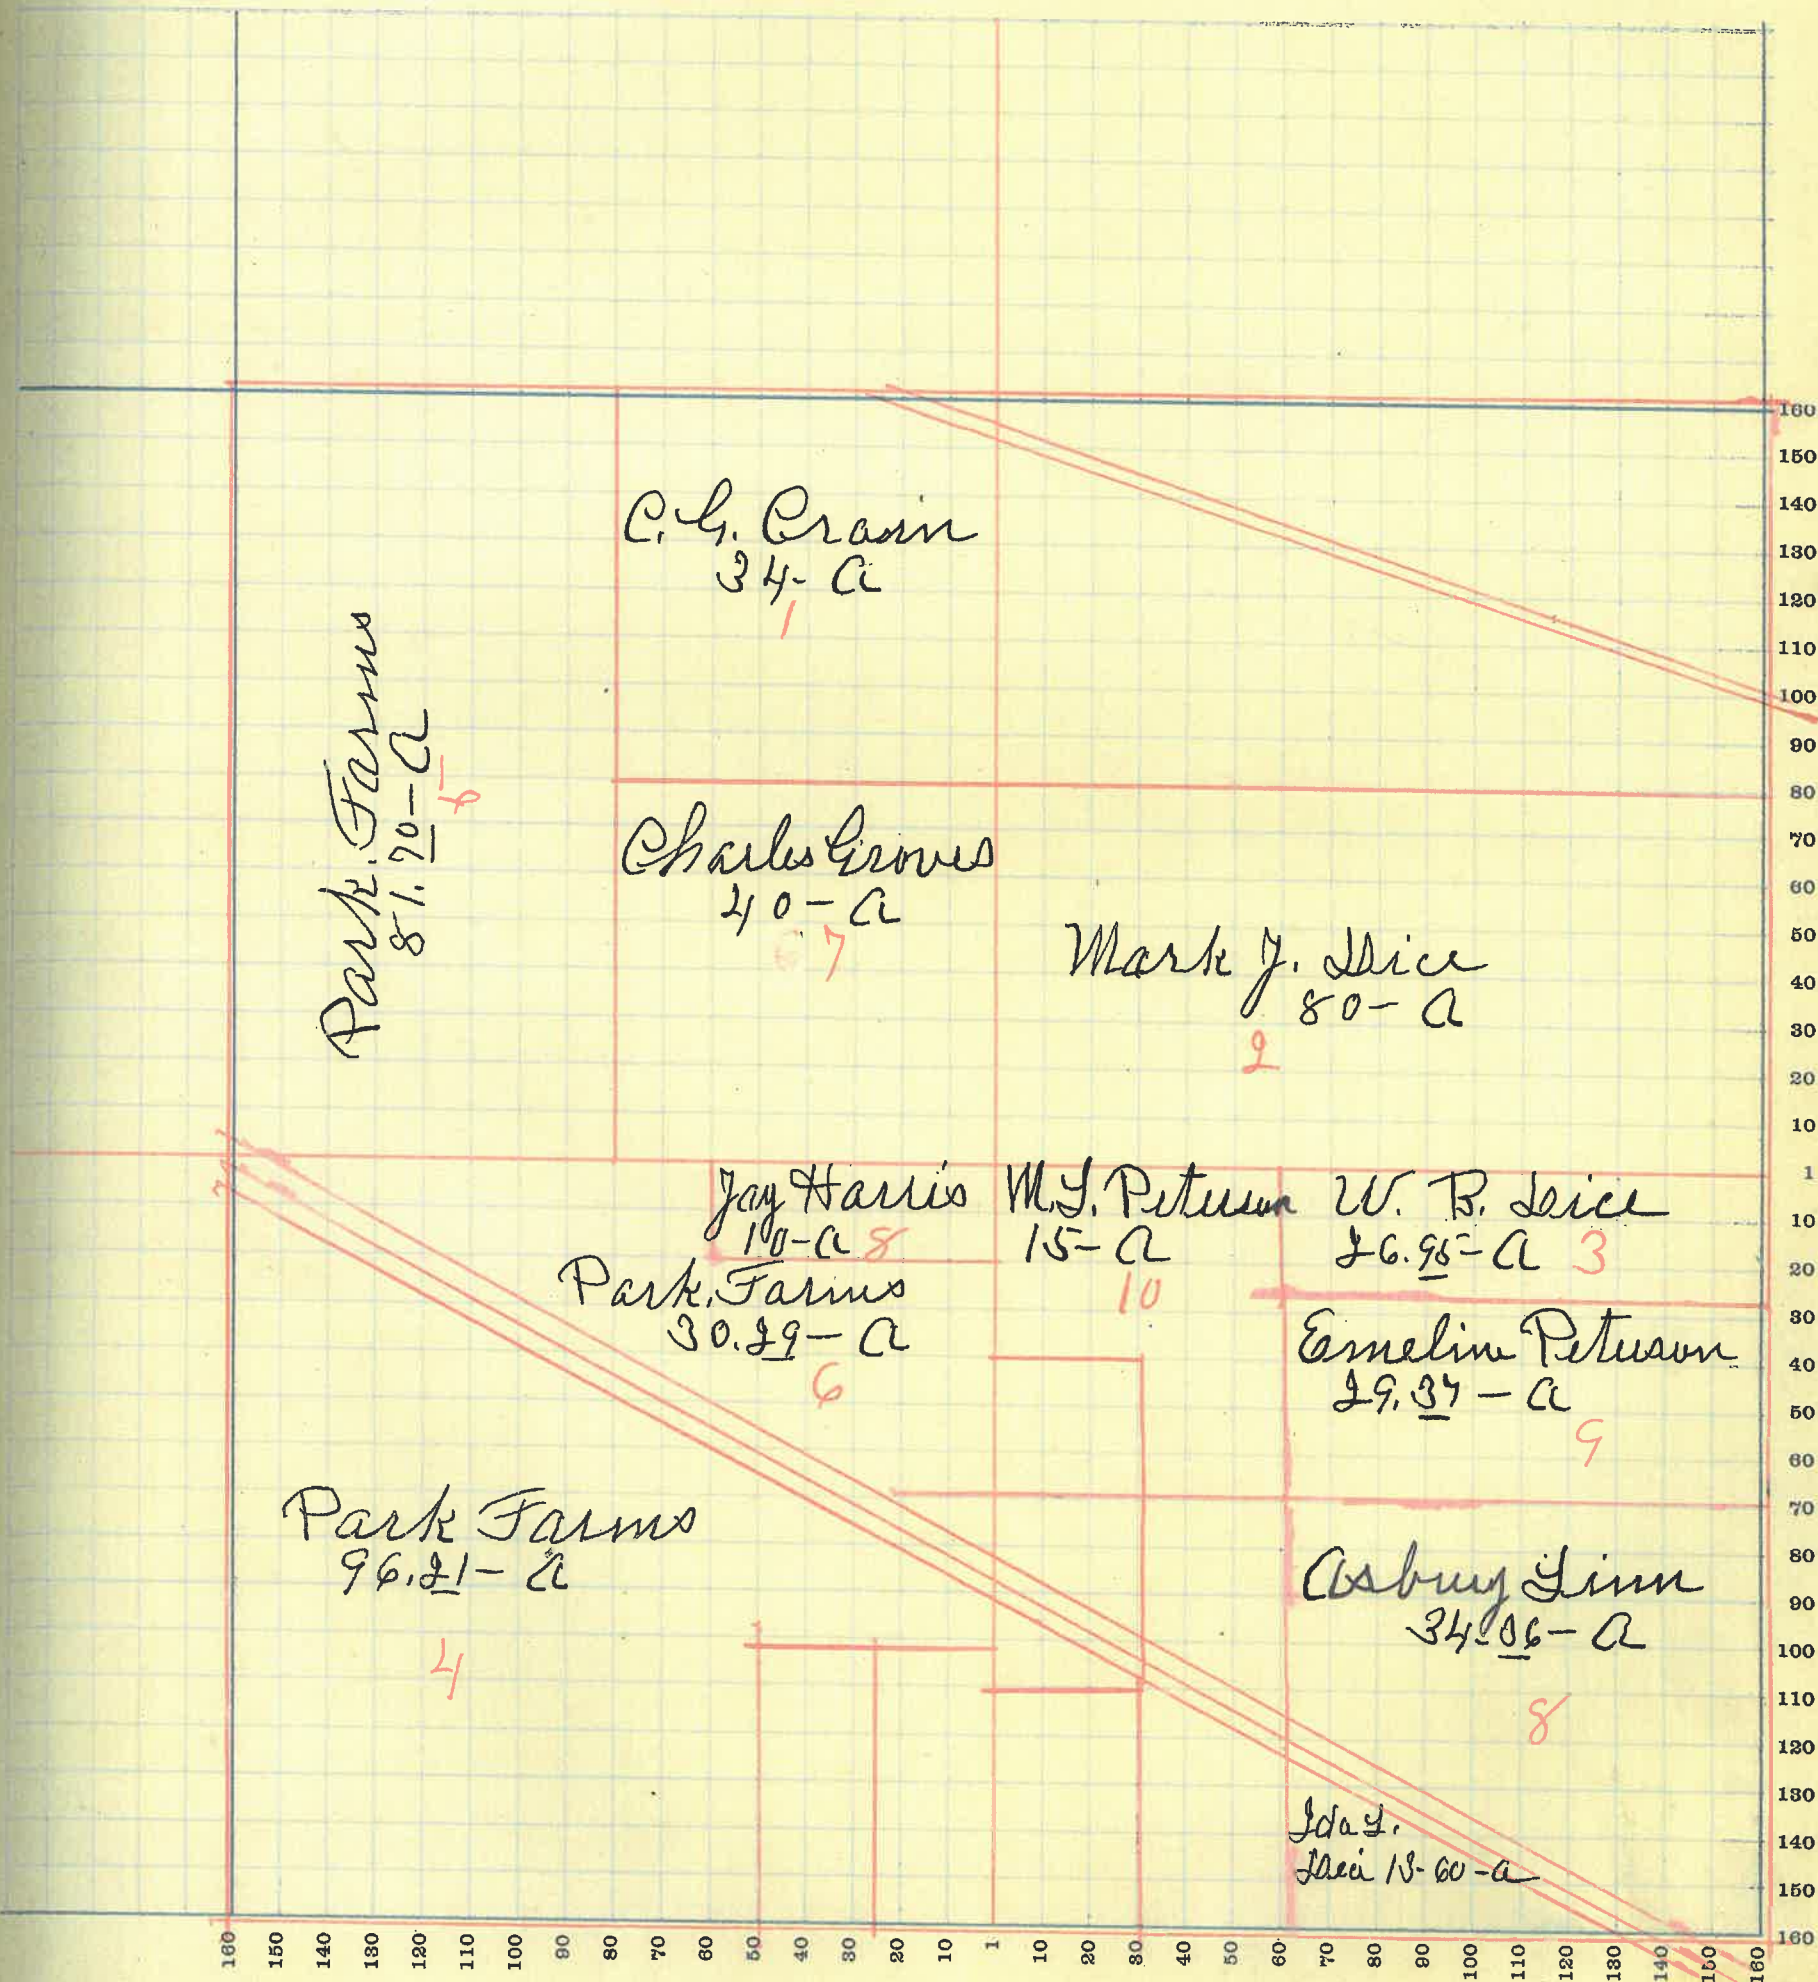 C. G. Crain
34-A
1
Park Farms
81.70-A
5
Charles Groves
40-A
7
Mark J. Dice
80-A
2
Jay Harris
10-A 8
M.L. Peterson
15-A
10
W. B. Dice
26.95-A 3
Park Farms
30.29-A
6
Emeline Peterson
29.37-A
9
Park Farms
96.21-A
4
Asbury Linn
34.06-A
8
Ida L.
Dice 13-60-A
160
150
140
130
120
110
100
90
80
70
60
50
40
30
20
10
1
10
20
30
40
50
60
70
80
90
100
110
120
130
140
150
160
160 150 140 130 120 110 100 90 80 70 60 50 40 30 20 10 1 10 20 30 40 50 60 70 80 90 100 110 120 130 140 150 160